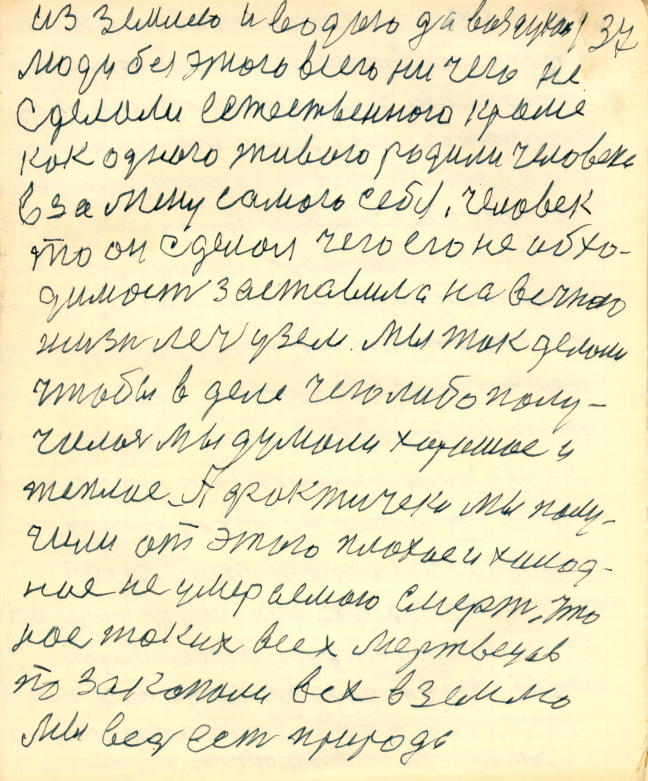 из землею и водою да воздухом 37
люди без этого всего ничего не
сделали естественного кроме
как одного живого родили человека
взамену самого себя. Человек
то он сделал чего его не обхо-
димост заставила на вечною
жизн леч узем. мы так делали
чтобы в деле чего либо полу-
чилося мы думали хорошое и
теплое. А фактичеки мы полу-
чили от этого плохое и холод-
ное не умераемою смерт, что
ное таких всех мертвецов
по закопали вех в землю
мы вед ест природа